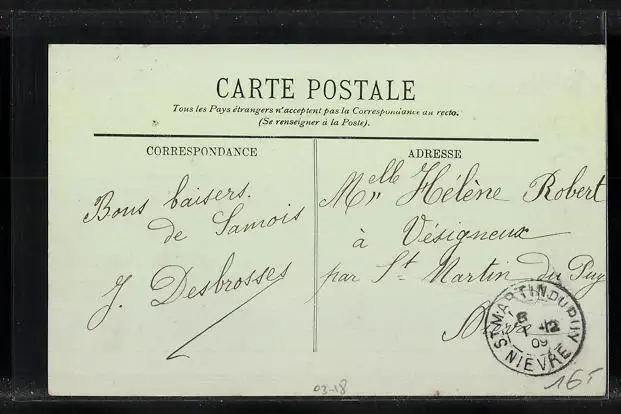 CARTE POSTALE
Tous les Pays étrangers n'acceptent pas la Correspondance au recto.
(Se renseigner à la Poste).
CORRESPONDANCE
Bons baisers.
de Samois
J. Desbrosses
ADRESSE
Melle Hélène Robert
à Vésigneux
par St Martin du Puy
Nièvre
ST-MARTIN-DU-PUY
12
09
NIEVRE
03-18
16F